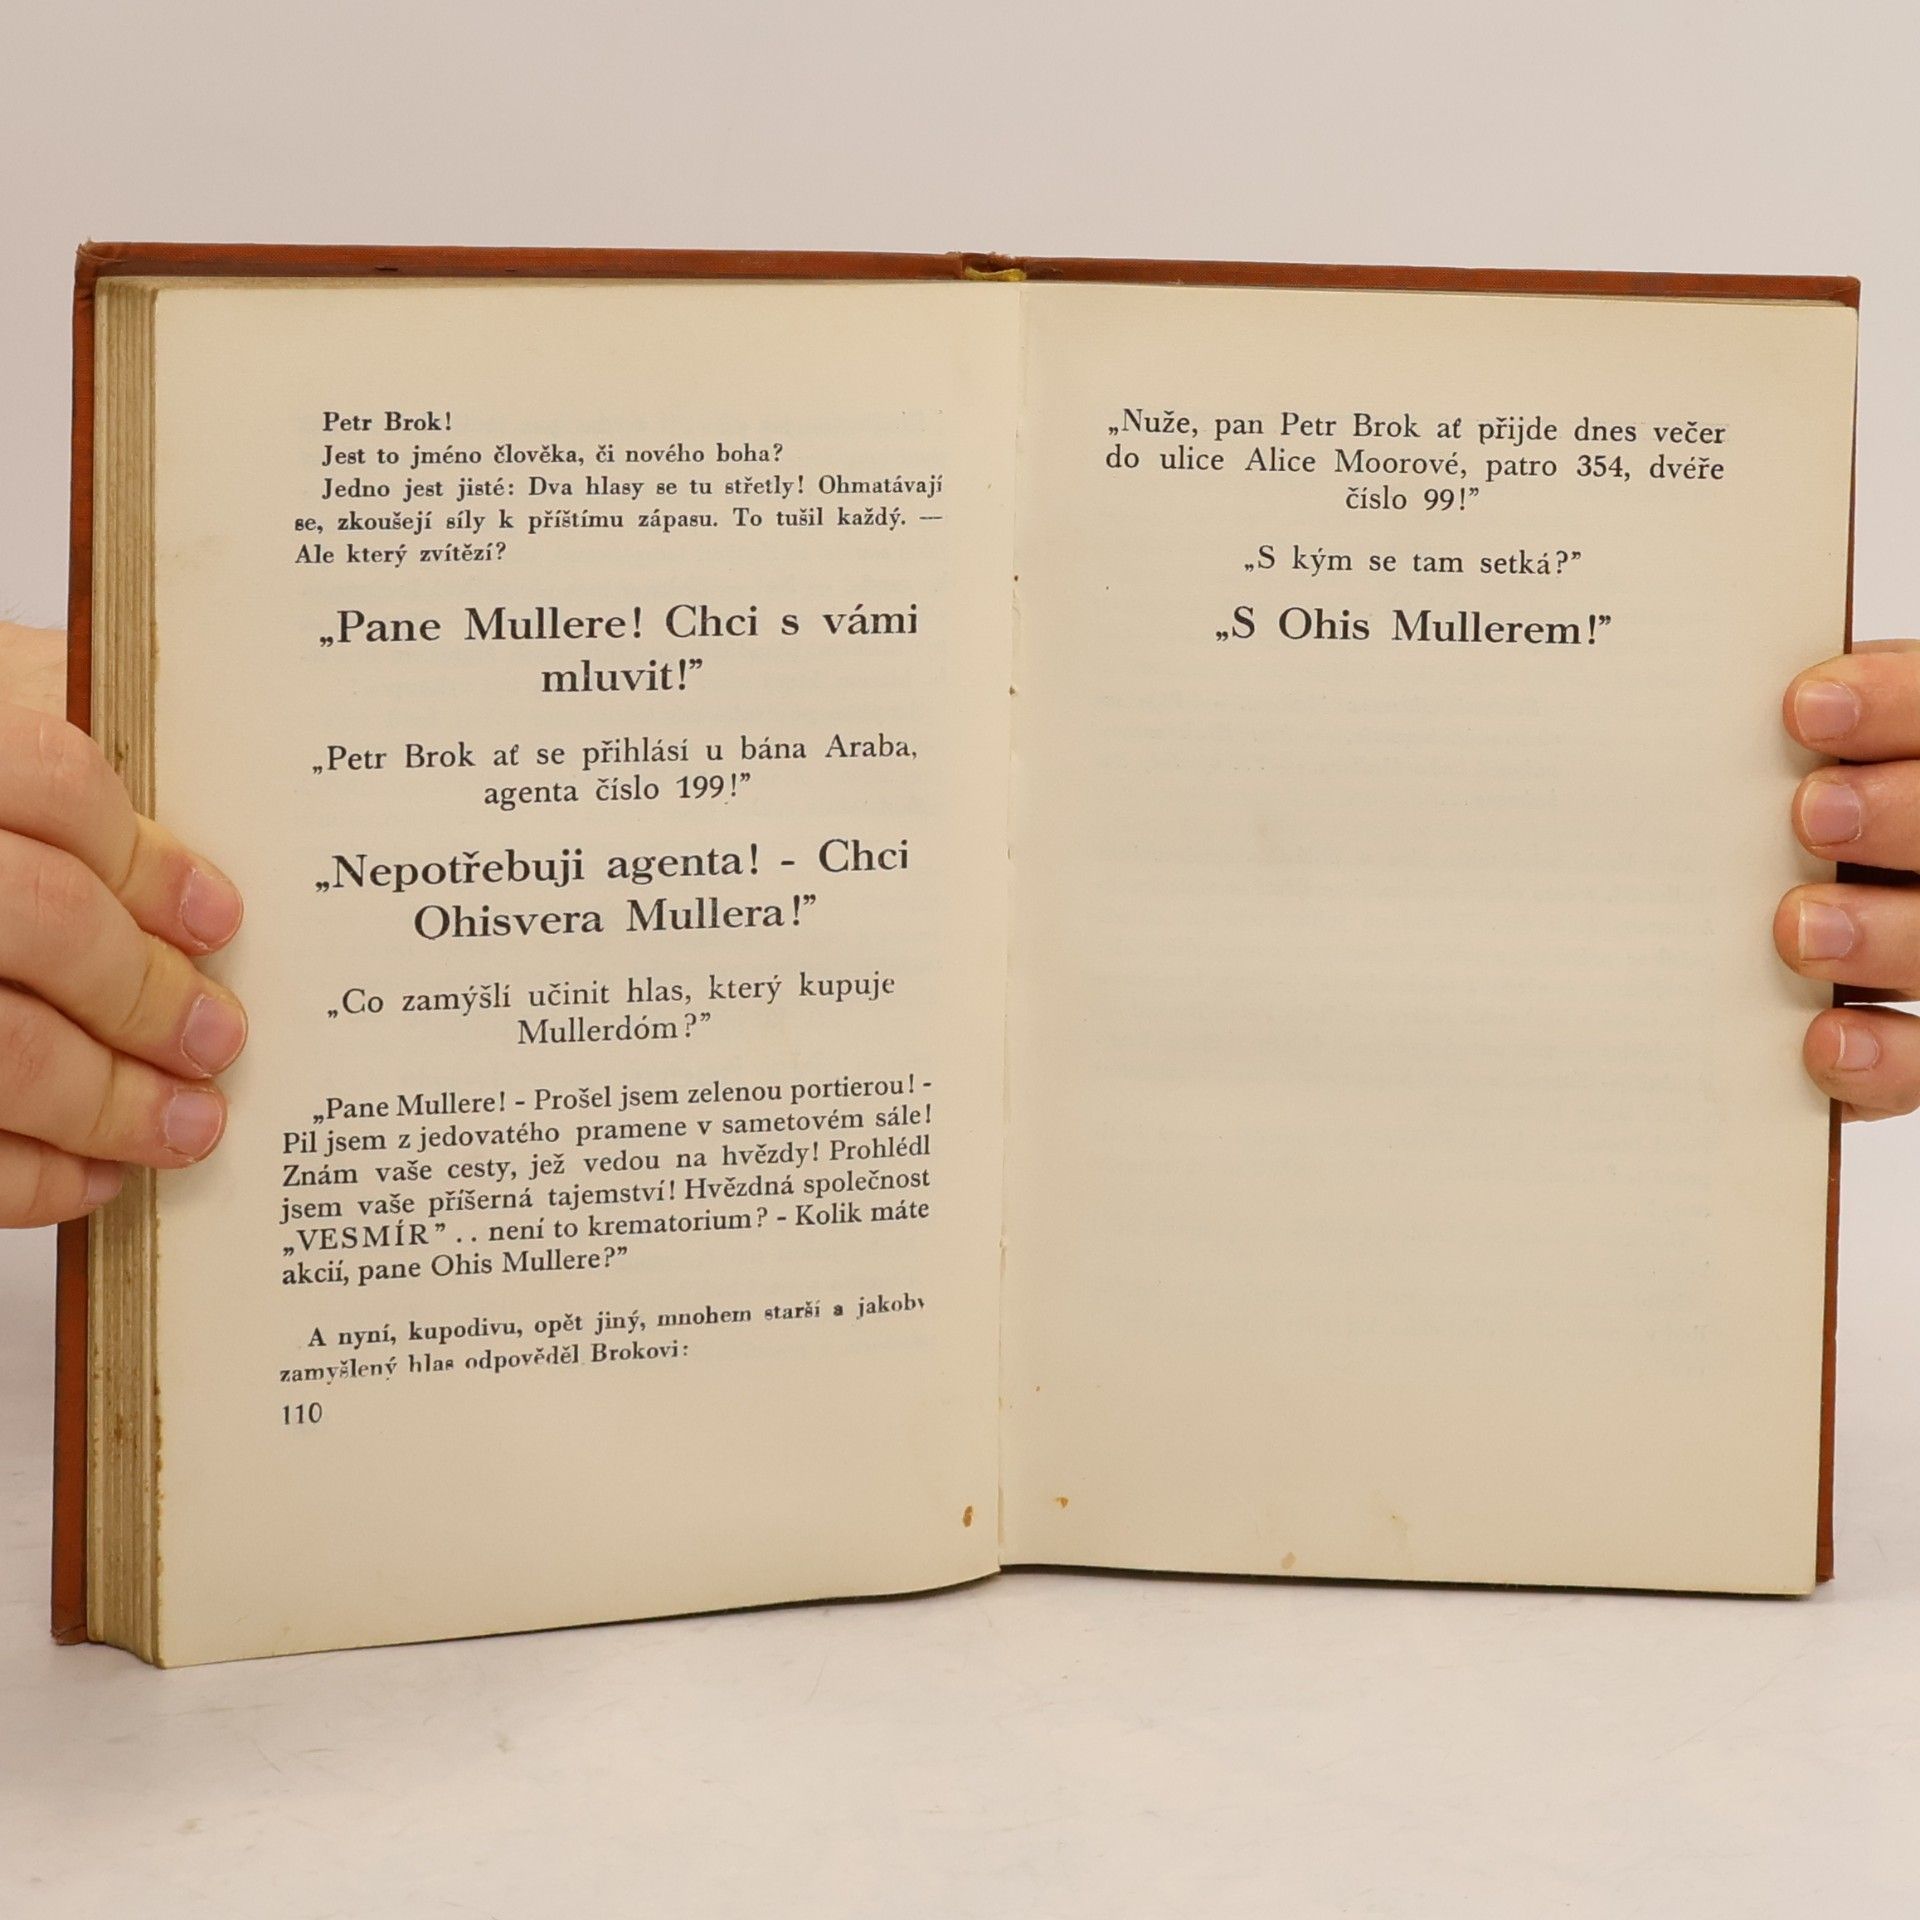 Petr Brok!
Jest to jméno člověka, či nového boha?
Jedno jest jisté: Dva hlasy se tu střetly! Ohmatávají
se, zkoušejí síly k příštímu zápasu. To tušil každý. —
Ale který zvítězí?
„Pane Mullere! Chci s vámi
mluvit!”
„Petr Brok ať se přihlásí u bána Araba,
agenta číslo 199!”
„Nepotřebuji agenta! - Chci
Ohisvera Mullera!”
„Co zamýšlí učinit hlas, který kupuje
Mullerdóm?”
„Pane Mullere! - Prošel jsem zelenou portierou! -
Pil jsem z jedovatého pramene v sametovém sále!
Znám vaše cesty, jež vedou na hvězdy! Prohlédl
jsem vaše příšerná tajemství! Hvězdná společnost
„VESMÍR” . . není to krematorium? - Kolik máte
akcií, pane Ohis Mullere?”
A nyní, kupodivu, opět jiný, mnohem starší a jakoby
zamyšlený hlas odpověděl Brokovi:
110
„Nuže, pan Petr Brok ať přijde dnes večer
do ulice Alice Moorové, patro 354, dvéře
číslo 99!”
„S kým se tam setká?”
„S Ohis Mullerem!”